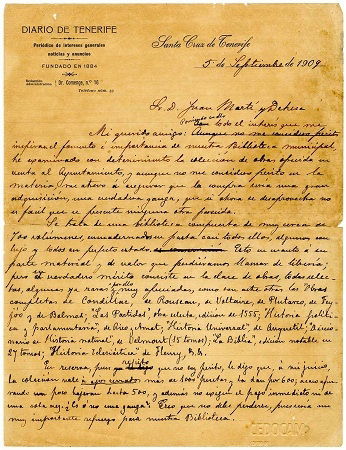 DIARIO DE TENERIFE
Periódico de intereses generales
noticias y anuncios
FUNDADO EN 1884
Redacción
Administración
Dr. Comenge, n.º 16
TELÉFONO NÚM.
Santa Cruz de Tenerife
5 de Septiembre de 1909
Sr. D. Juan Martí y Dehesa
Todo el interés que me
Mi querido amigo: Aunque no me considero perito
inspira el fomento é importancia de nuestra Biblioteca municipal,
he examinado con detenimiento la coleccion de obras ofrecida en
venta al Ayuntamiento, y aunque no me considero perito en la
materia, me atrevo á asegurar que la compra sería una gran
adquisicion, una verdadera ganga, que si ahora se desaprovecha no
es facil que se presente ninguna otra parecida.
Se trata de una biblioteca compuesta de muy cerca de
700 volúmenes, encuadernados en pasta casi todos ellos, algunos con
lujo y todos en perfecto estado. Esto en cuanto á su
parte material, de valor que pudiéramos llamar de librería,
pero el verdadero mérito consiste en la clase de obras, todas selec-
tas, algunas ya raras y muy apreciadas, como son entre otras las Obras
completas de Condillac, de Rousseau, de Voltaire, de Plutarco, de Fey-
jóo y de Balmes; "Las Partidas", obra selecta, edicion de 1555; Historia política
y parlamentaria, de Rico y Amat; "Historia Universal", de Anquetil; "Diccio-
nario de Historia natural", de Belmont (15 tomos); "La Biblia", edicion notable en
27 tomos; "Historia Eclesiástica" de Henry, &. &.
En reserva, pues no soy perito, le digo que, á mi juicio,
la coleccion vale más de 1000 pesetas y la dan por 600; acaso apu-
rando un poco bajaran hasta 500, y además no exigen el pago inmediato ni de
una sola vez. ¿Es ó no una ganga? Creo que no debe perderse, pues sería un
muy importante refuerzo para nuestra Biblioteca.